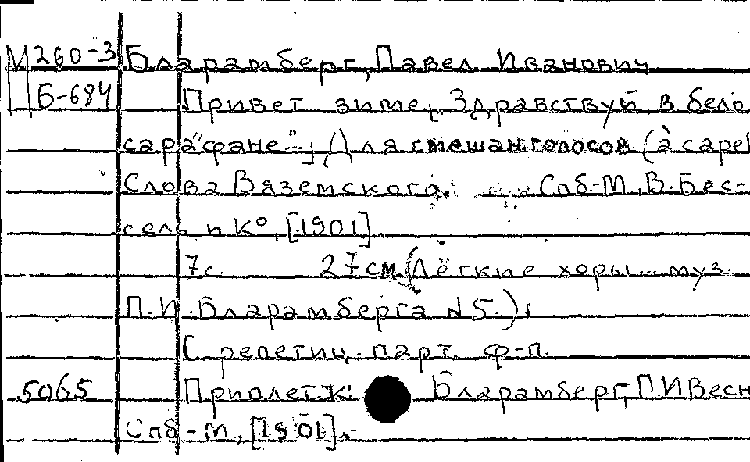 М260-3 Бларамберг, Павел Иванович
Б-684 Привет зиме. "Здравствуй, в бело
сарафане"; Для смешан. голосов (a capel
Слова Вяземского. Спб-М, В. Бес-
сель и К°, [1901]
7с. 27см (Лёгкие хоры... муз.
П.И. Бларамберга №5.);
С репетиц. парт. ф-п.
5065 Приплет. к: Бларамберг, П И Весн
Спб-М, [1901].